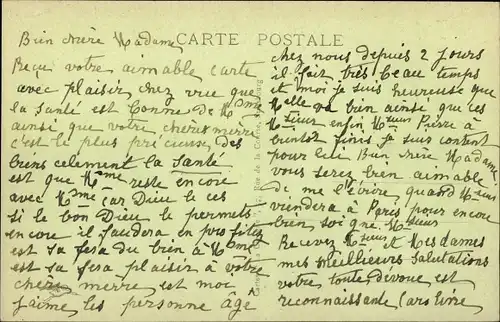 Bien chère Madame
CARTE POSTALE
Reçu votre aimable carte
avec plaisir chez vue que
la santé est bonne de Mme
ainsi que votre chère merre
c'est le plus précieuse des
biens celement la Santé
est que Mme reste encore
avec Mme car Dieu le ces
si le bon Dieu le permets
encore il faudera en profitez
est sa fera du bien à Mme
est sa fera plaisir à votre
chère merre est moi
j'aime les personne âgé
chez nous depuis 2 jours
il fait très beau temps
et moi je suis heureuse que
Melle va bien ainsi que ces
Msieur enfin Msieur Pierre à
bientot finis je suis contant
pour lui Bien chère Madame
vous seres bien aimable
de me l'écrire quand Msieur
viendera à Paris pour encore
bien soigne Msieur
Recuvez Msieur et Mesdames
mes meilleures Salutations
votre toute dévoue est
reconnaissante